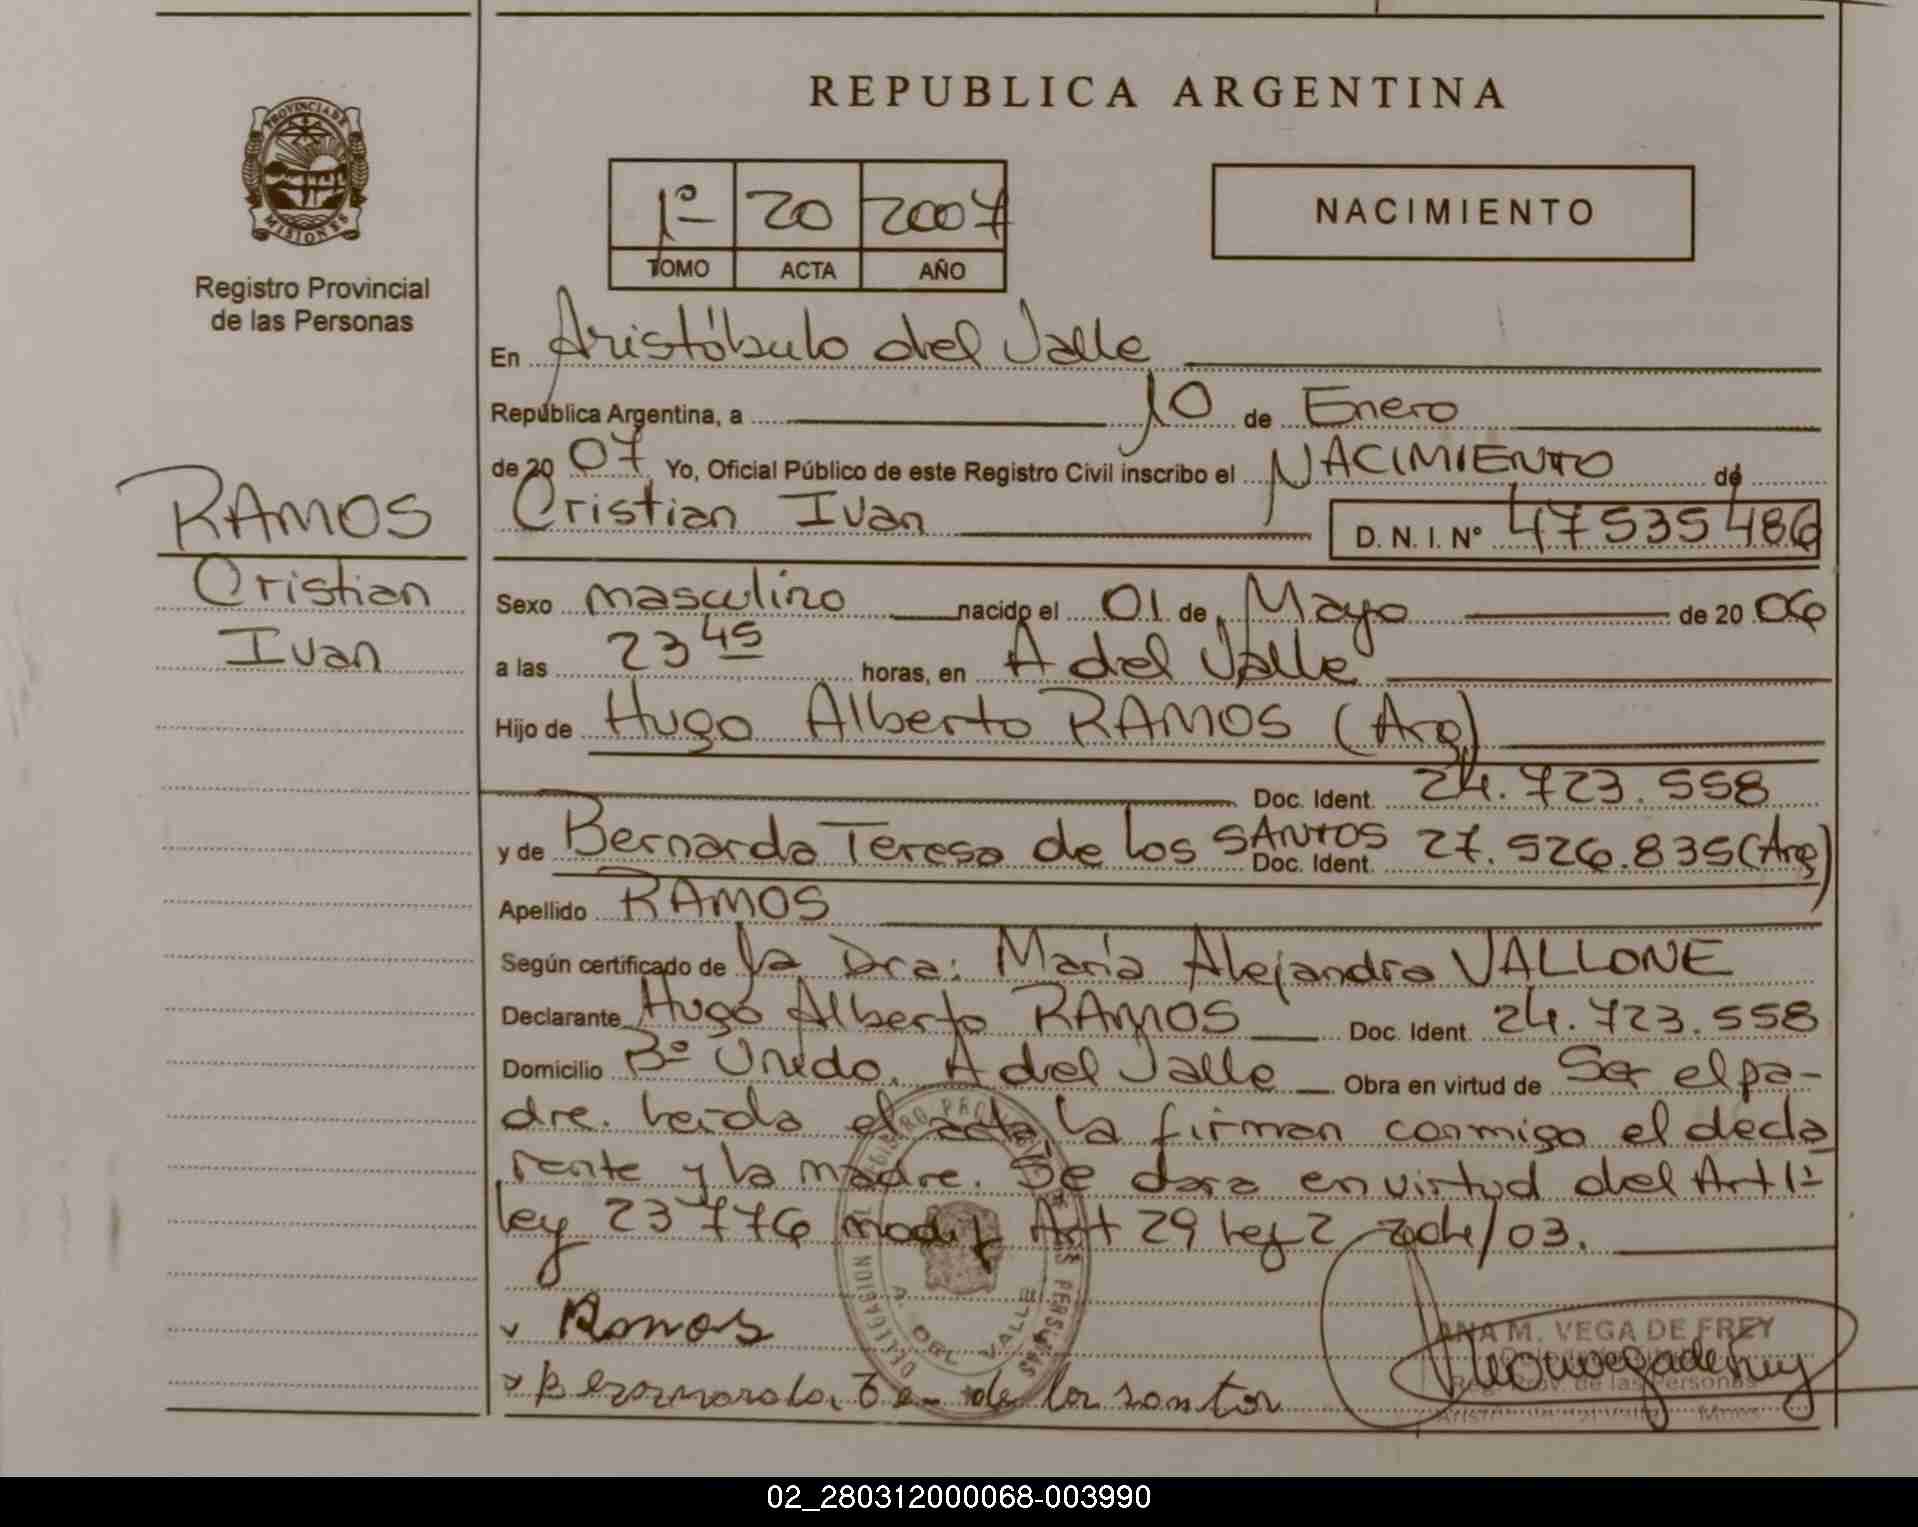 REPUBLICA ARGENTINA
PROVINCIA DE
MISIONES
Registro Provincial
de las Personas
1º 20 2007
TOMO ACTA AÑO
NACIMIENTO
En Aristóbulo del Valle
República Argentina, a 10 de Enero
de 20 07 Yo, Oficial Público de este Registro Civil inscribo el NACIMIENTO de
Cristian Ivan D. N. I. Nº 47535486
RAMOS
Cristian
Ivan
Sexo masculino nacido el 01 de Mayo de 20 06
a las 23 45 horas, en A del Valle
Hijo de Hugo Alberto RAMOS (Arg)
Doc. Ident. 24.723.558
y de Bernarda Teresa de los SANTOS Doc. Ident. 27.526.835 (Arg)
Apellido RAMOS
Según certificado de la Dra: María Alejandra VALLONE
Declarante Hugo Alberto RAMOS Doc. Ident. 24.723.558
Domicilio Bº Unido. A del Valle Obra en virtud de Ser el pa-
dre. Leida el acta, la firman conmigo el decla
rante y la madre. Se dara en virtud del Art 1º
ley 23776 modif Art 29 ley 2 204/03.
Ramos
de los santos
DELEGACION
A. DEL VALLE
ANA M. VEGA DE FREY
Reg. Prov. de las Personas
02_280312000068-003990